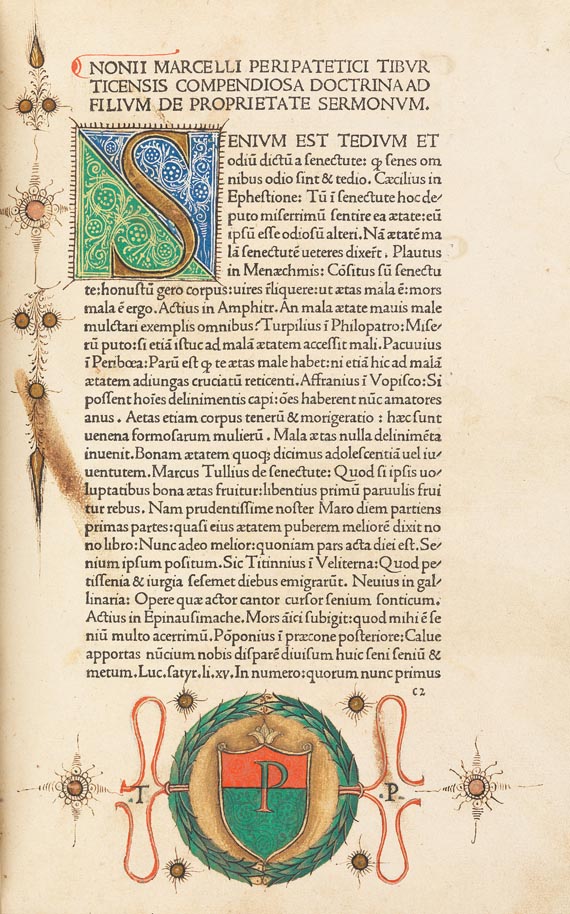 NONII MARCELLI PERIPATETICI TIBVR
TICENSIS COMPENDIOSA DOCTRINA AD
FILIVM DE PROPRIETATE SERMONVM.
SENIVM EST TEDIVM ET
odiū dictū a senectute: ꝙ senes om
nibus odio sint & tedio. Cæcilius in
Ephestione: Tū ī senectute hoc de/
puto miserrimū sentire ea ætate: eū
ipsū esse odiosū alteri. Nā ætatē ma
lā senectutē ueteres dixert̄. Plautus
in Menæchmis: Cōsitus sū senectu
te: honustū gero corpus: uires rēliquere: ut ætas mala ē: mors
mala ē ergo. Actius in Amphitr. An mala ætate mauis male
mulctari exemplis omnibus? Turpilius ī Philopatro: Mise/
rū puto: si etiā istuc ad malā ætatem accessit mali. Pacuuius
ī Peribœa: Parū est ꝙ te ætas male habet: ni etiā hic ad malā
ætatem adiungas cruciatū reticenti. Affranius ī Vopisco: Si
possent hoīes delinimentis capi: ōes haberent nūc amatores
anus. Aetas etiam corpus tenerū & morigeratio: hæc sunt
uenena formosarum mulierū. Mala ætas nulla delinimēta
inuenit. Bonam ætatem quoqꝫ dicimus adolescentiā uel iu/
uentutem. Marcus Tullius de senectute: Quod si ipsis uo/
luptatibus bona ætas fruitur: libentius primū paruulis frui
tur rebus. Nam prudentissime noster Maro diem partiens
primas partes: quasi eius ætatem puberem meliorē dixit no
no libro: Nunc adeo melior: quoniam pars acta diei est. Se/
nium ipsum positum. Sic Titinnius ī Veliterna: Quod pe/
tissenia & iurgia sesemet diebus emigrarūt. Neuius in gal/
linaria: Opere quæ actor cantor cursor senium sonticum.
Actius in Epinausimache. Mors āici subigit: quod mihi ē se
niū multo acerrimū. Pōponius ī præcone posteriore: Calue
apportas nūcium nobis disparē diuisum huic seni seniū &
metum. Luc. satyr. li. xv. In numero: quorum nunc primus
c2
.T. P .P.